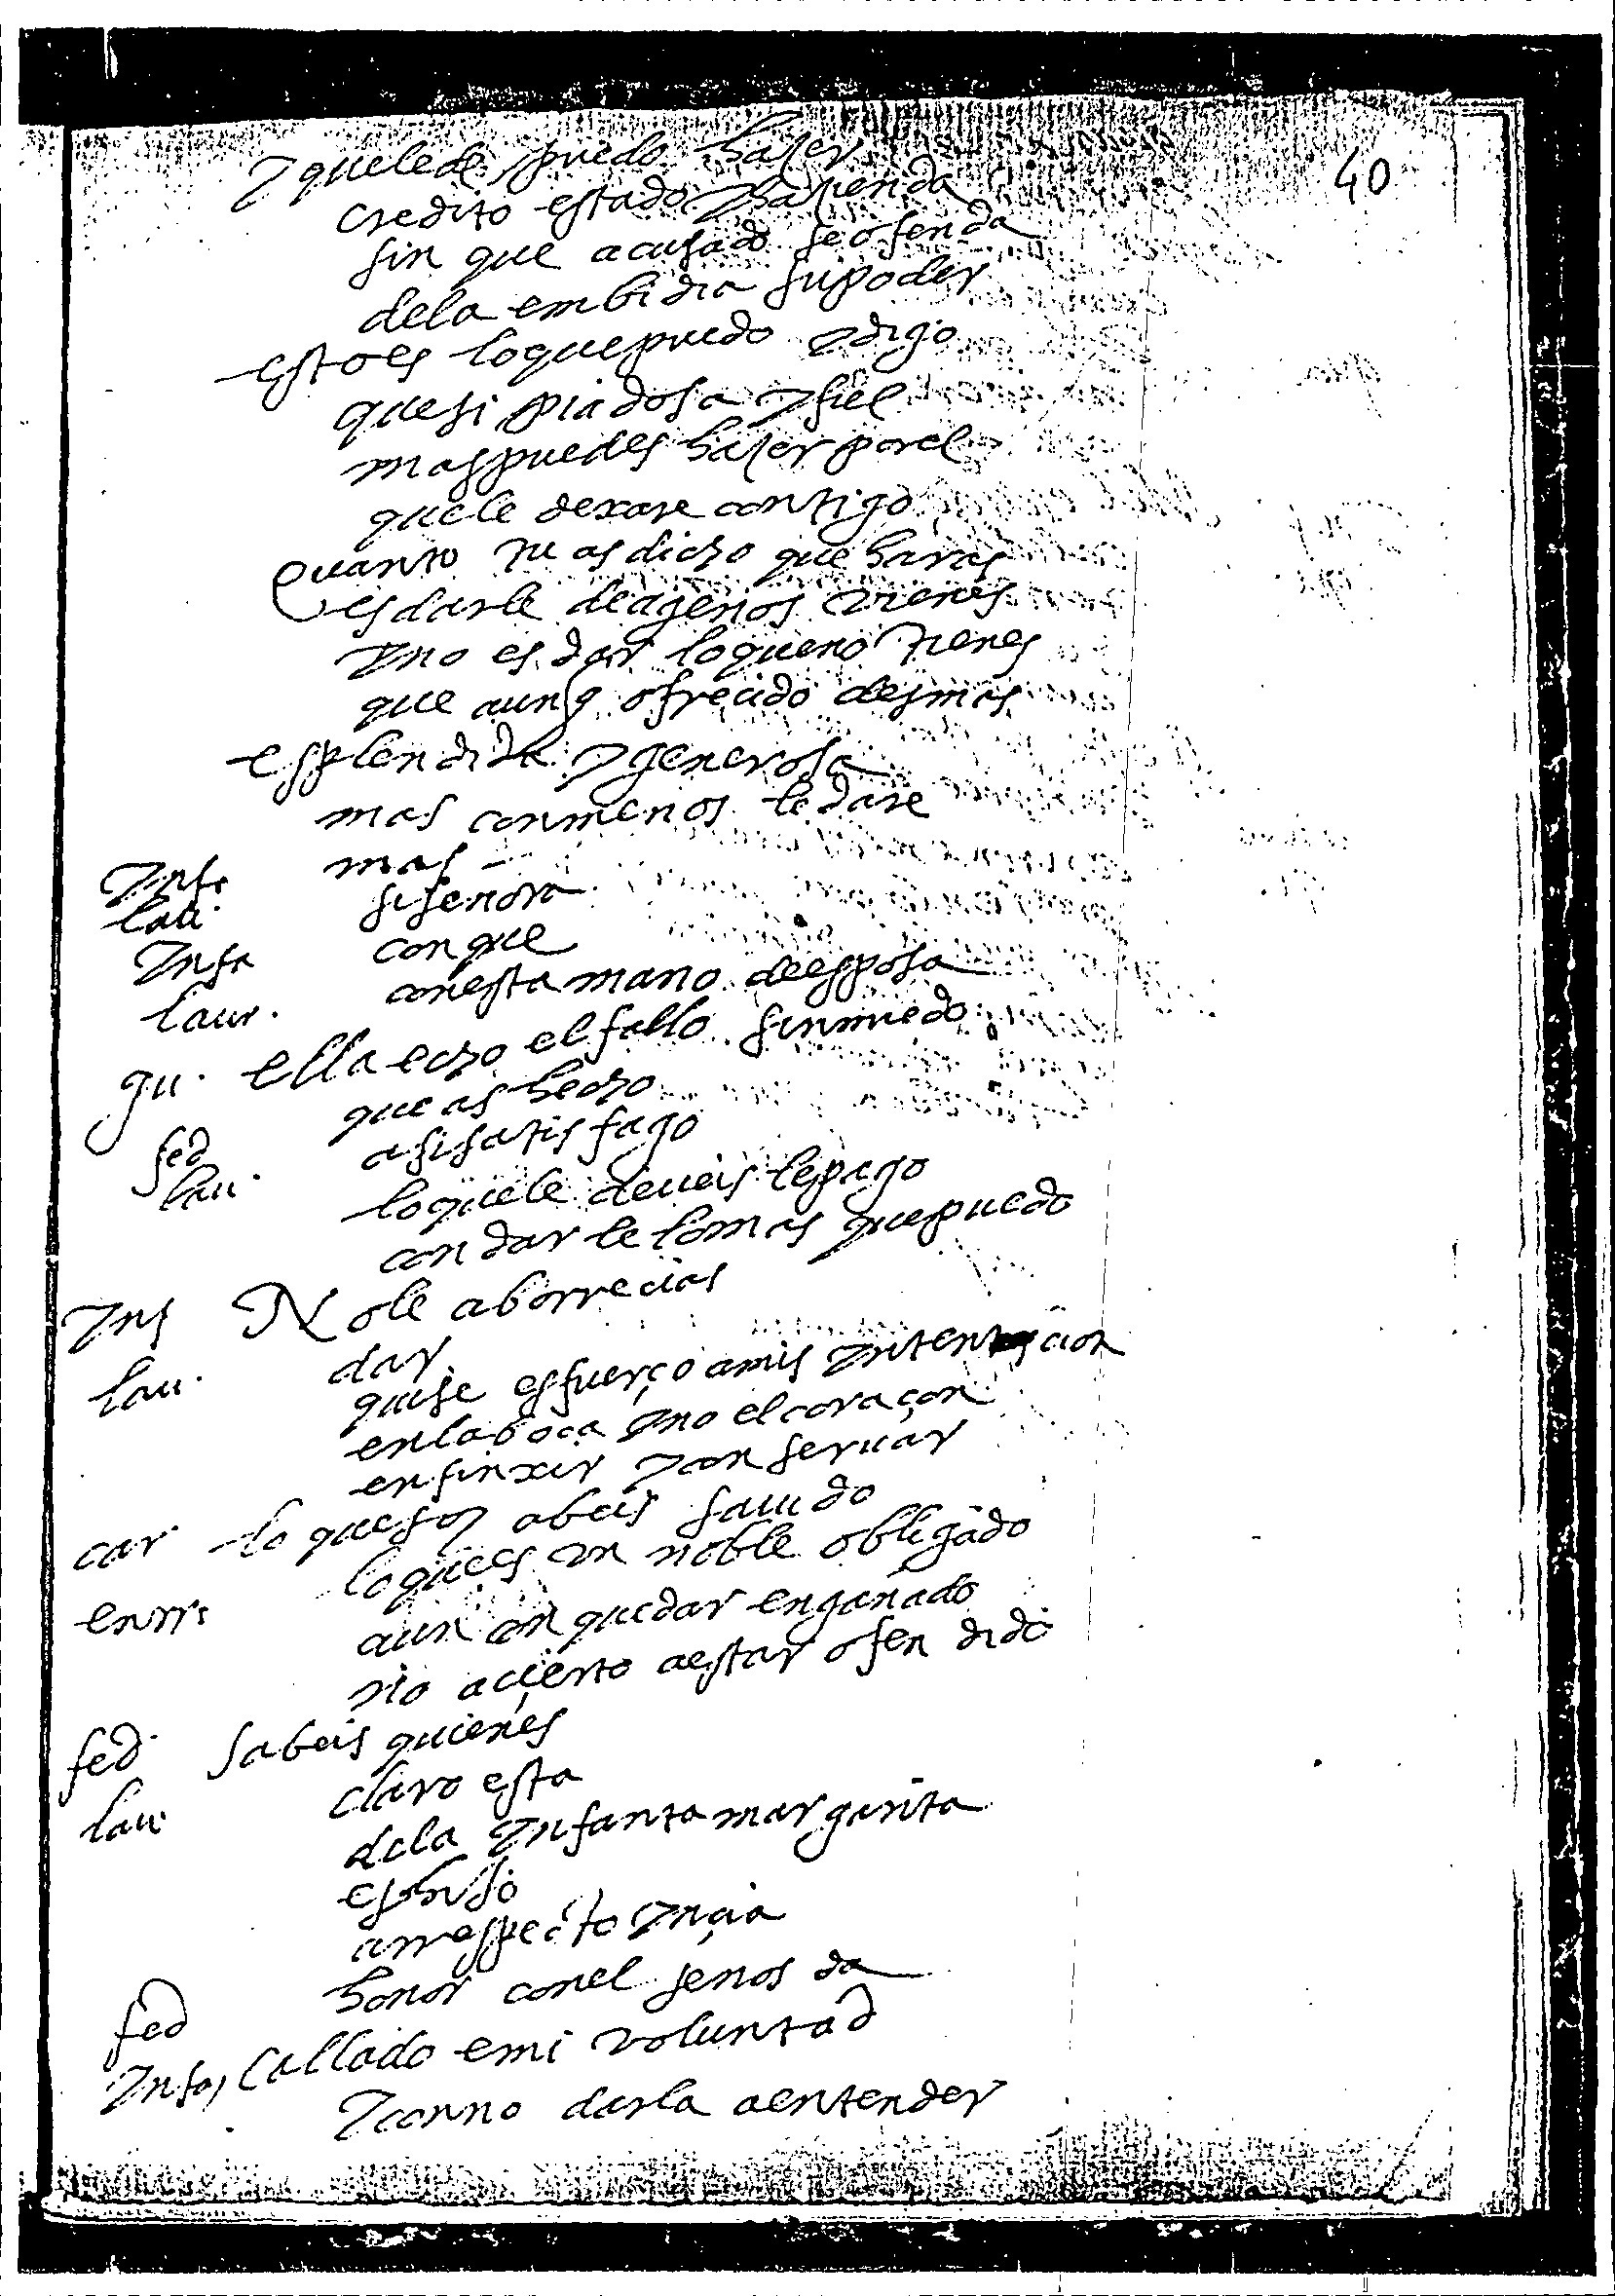 40
y que le de puedo haçer
credito estado y haçienda
sin que acusado se ofenda
dela embidia su poder
esto es lo que puedo y digo
que si piadosa y fiel
mas puedes haçer por el
que le dexare contigo
Quanto tu as dicho que haras
es darle de agenos vienes
y no es dar lo que no tienes
que aunq ofrecido as mas
esplendida y generosa
mas con menos le dare
Infa mas
lau. si señora
Infa con que
laur. con esta mano de esposa
gu. ella echo el fallo sin miedo
fed que as hecho
lau. asi satisfago
lo que le deueis le pago
con darle lo mas que puedo
Inf No le aborrecias
lau. dar
quise esfuerço a mis Intencion
en la boca y no el coraçon
en finxir y conseruar
car lo que soy abeis sauido
enrri lo que es un noble obligado
aun con quedar engañado
no acierto a estar ofendido
fed. sabeis quien es
lau. claro esta
dela Infanta margarita
es hijo
honor con el se nos da
fed
Infa, Callado e mi voluntad
y con no darla a entender